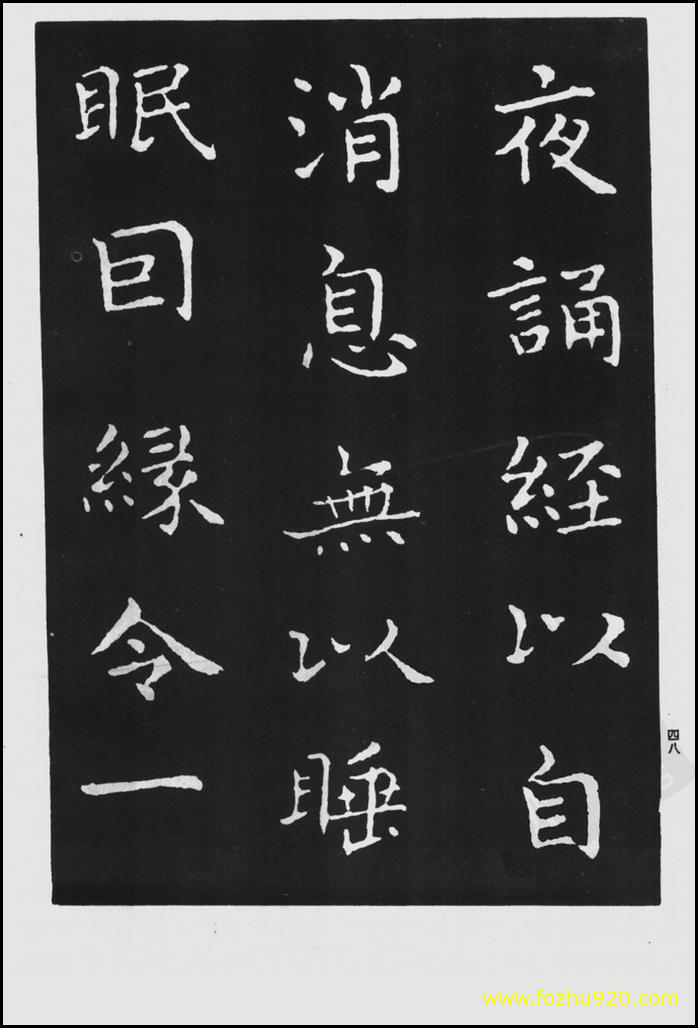 夜誦經以自
消息無以睡
眠因緣令一
四八
www.fozhu920.com